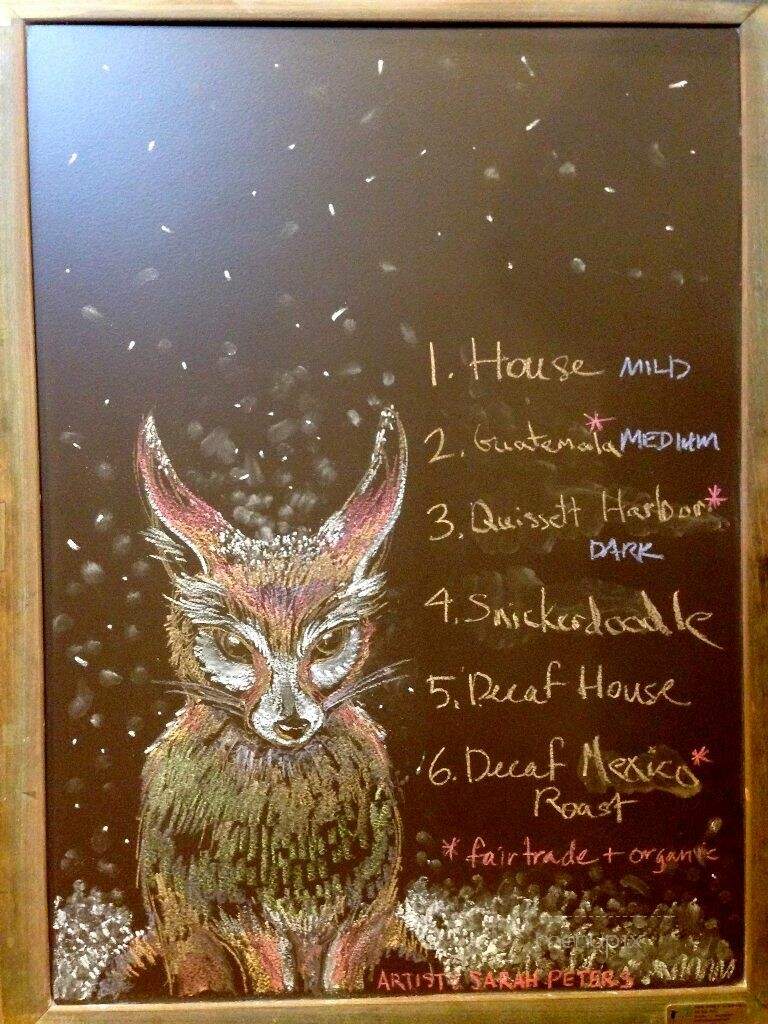 1. House MILD
2. Guatemala* MEDIUM
3. Quissett Harbor*
DARK
4. Snickerdoodle
5. Decaf House
6. Decaf Mexico*
Roast
* fair trade + organic
ARTIST: SARAH PETERS